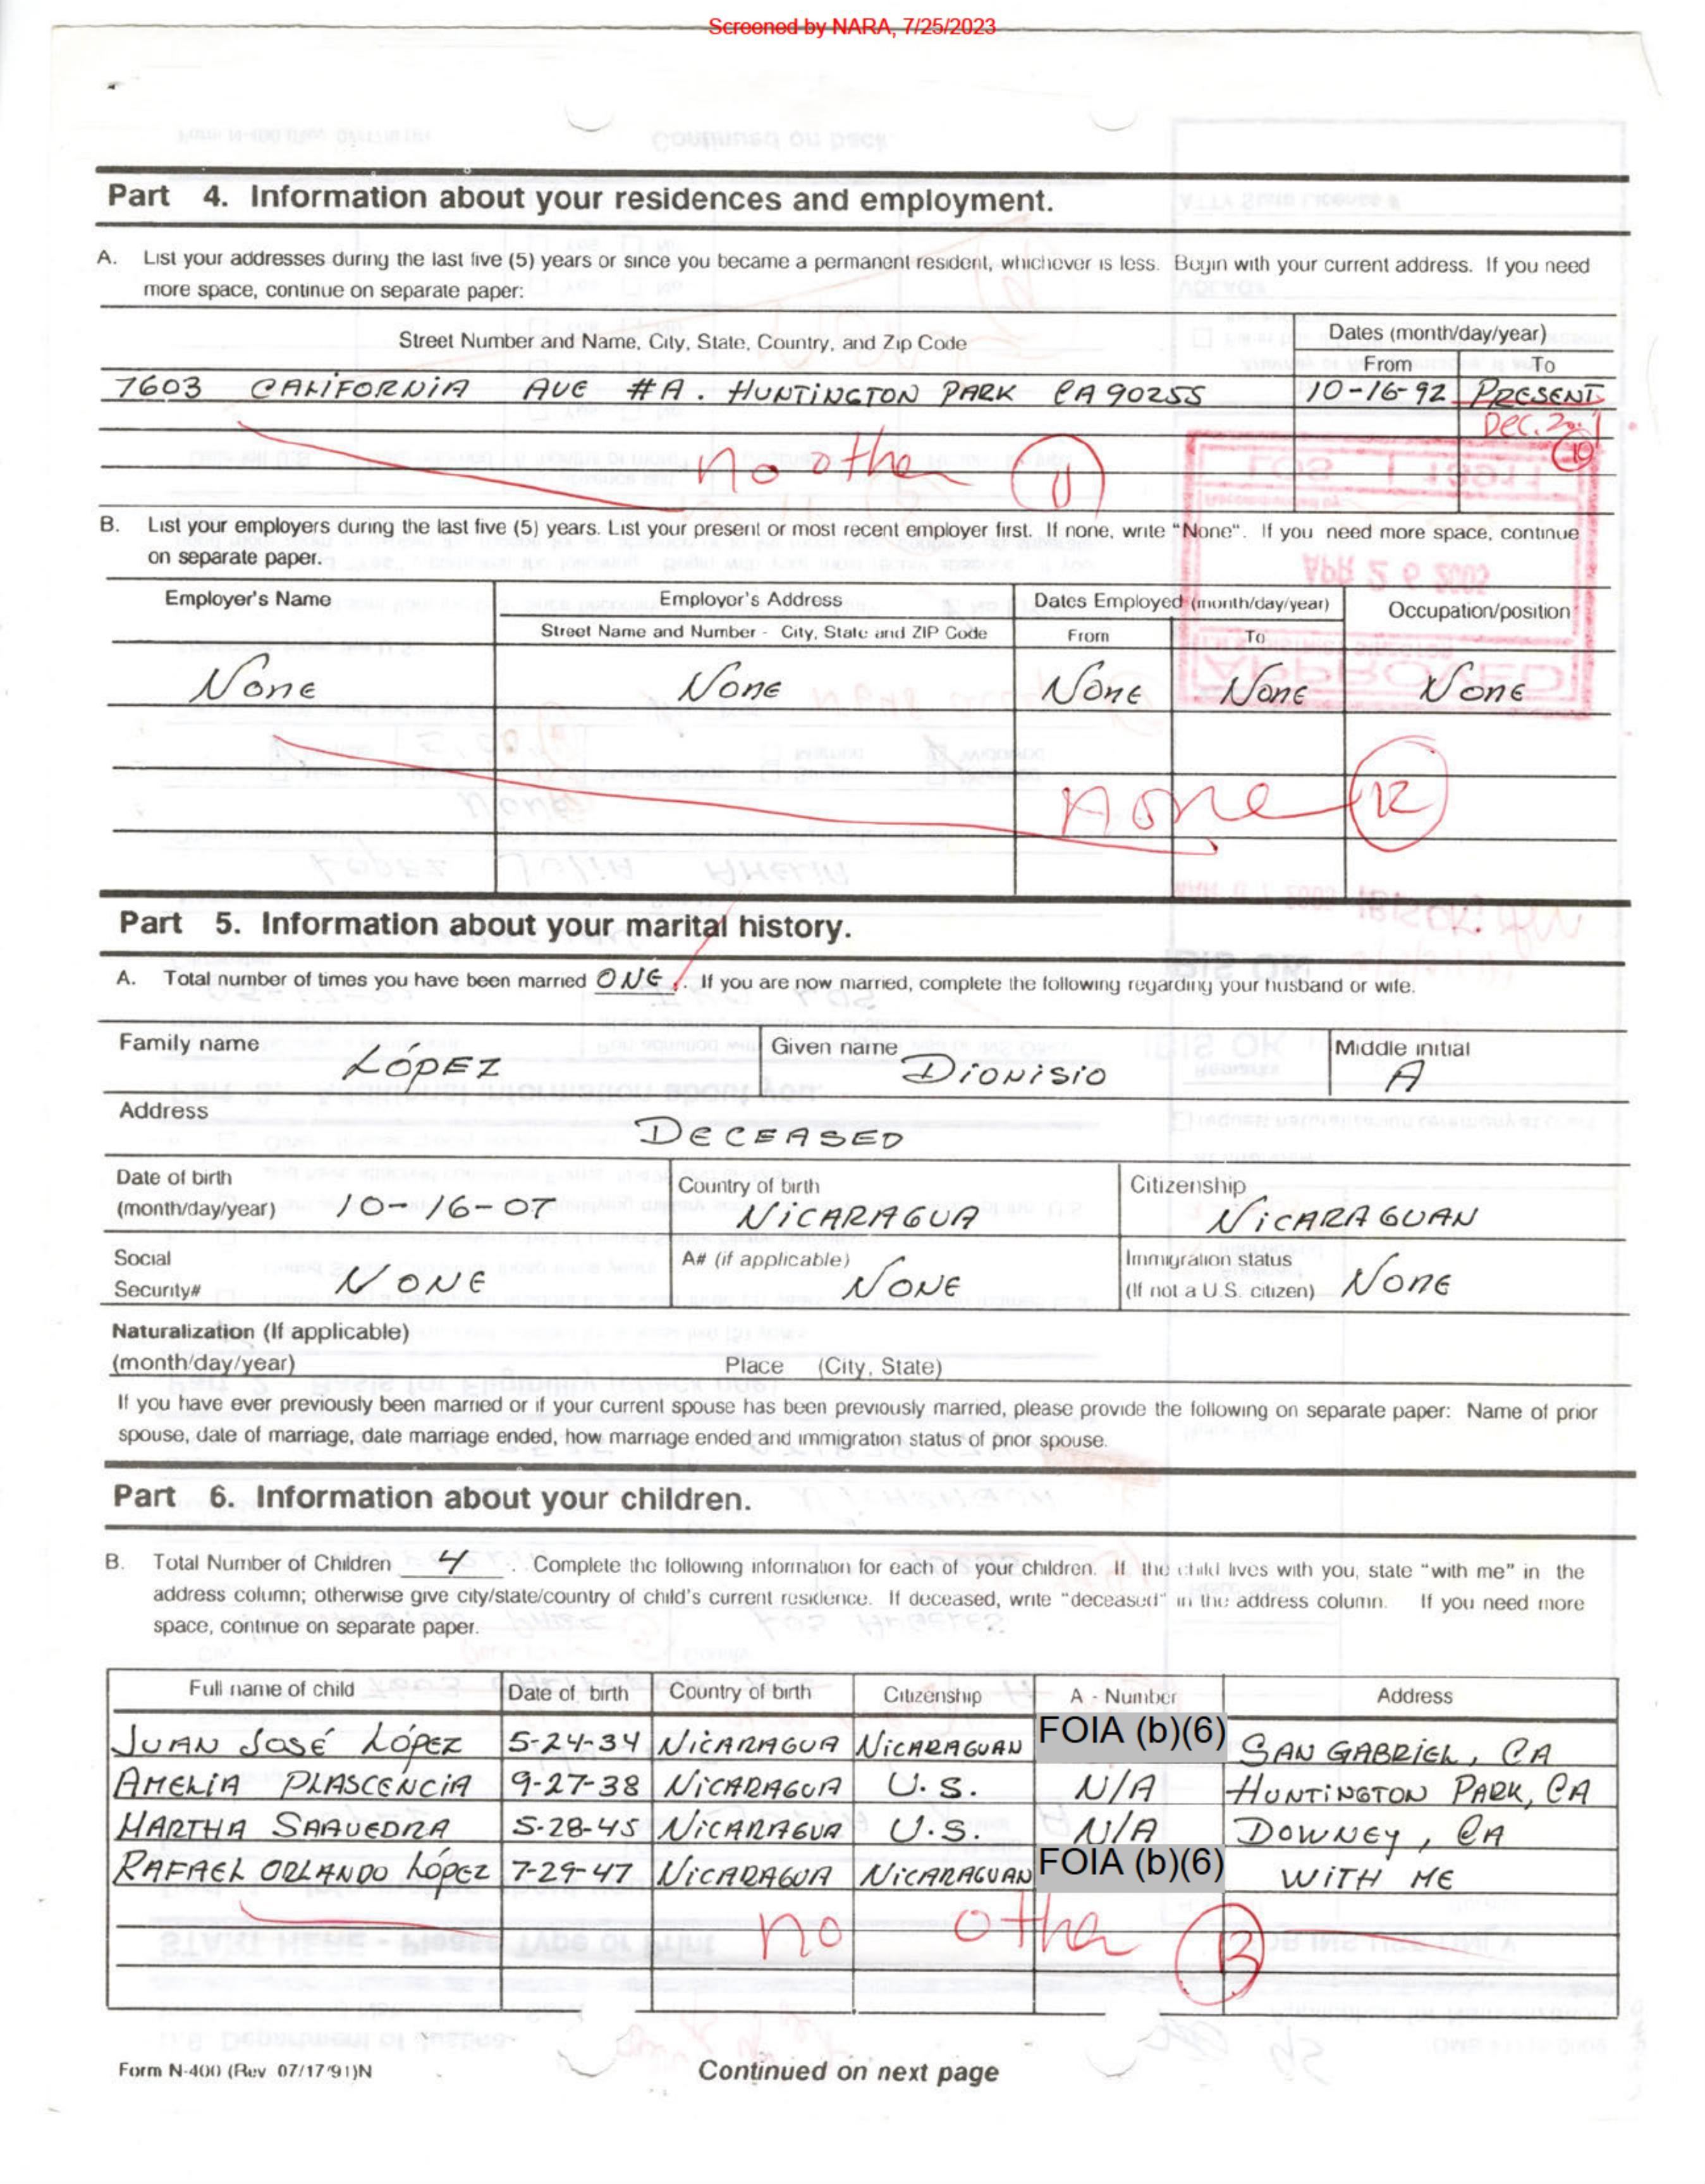 Screened by NARA, 7/25/2023
Part 4. Information about your residences and employment.
A. List your addresses during the last five (5) years or since you became a permanent resident, whichever is less. Begin with your current address. If you need
more space, continue on separate paper:
Street Number and Name, City, State, Country, and Zip Code
Dates (month/day/year)
From To
7603 CALIFORNIA AVE #A. HUNTINGTON PARK CA 90255 10-16-92 PRESENT
Dec. 20
no other 11
B. List your employers during the last five (5) years. List your present or most recent employer first. If none, write "None". If you need more space, continue
on separate paper.
Employer's Name Employer's Address Dates Employed (month/day/year) Occupation/position
Street Name and Number - City, State and ZIP Code From To
None None None None None
none 12
Part 5. Information about your marital history.
A. Total number of times you have been married ONE. If you are now married, complete the following regarding your husband or wife.
Family name LÓPEZ Given name DIONISIO Middle initial A
Address DECEASED
Date of birth (month/day/year) 10-16-07 Country of birth NICARAGUA Citizenship NICARAGUAN
Social Security# NONE A# (if applicable) NONE Immigration status (If not a U.S. citizen) NONE
Naturalization (If applicable)
(month/day/year) Place (City, State)
If you have ever previously been married or if your current spouse has been previously married, please provide the following on separate paper: Name of prior
spouse, date of marriage, date marriage ended, how marriage ended and immigration status of prior spouse.
Part 6. Information about your children.
B. Total Number of Children 4. Complete the following information for each of your children. If the child lives with you, state "with me" in the
address column; otherwise give city/state/country of child's current residence. If deceased, write "deceased" in the address column. If you need more
space, continue on separate paper.
Full name of child Date of birth Country of birth Citizenship A - Number Address
JUAN JOSÉ LÓPEZ 5-24-34 NICARAGUA NICARAGUAN FOIA (b)(6) SAN GABRIEL, CA
AMELIA PLASCENCIA 9-27-38 NICARAGUA U.S. N/A HUNTINGTON PARK, CA
MARTHA SAAVEDRA 5-28-45 NICARAGUA U.S. N/A DOWNEY, CA
RAFAEL ORLANDO LÓPEZ 7-29-47 NICARAGUA NICARAGUAN FOIA (b)(6) WITH ME
no other 13
Form N-400 (Rev 07/17/91)N Continued on next page